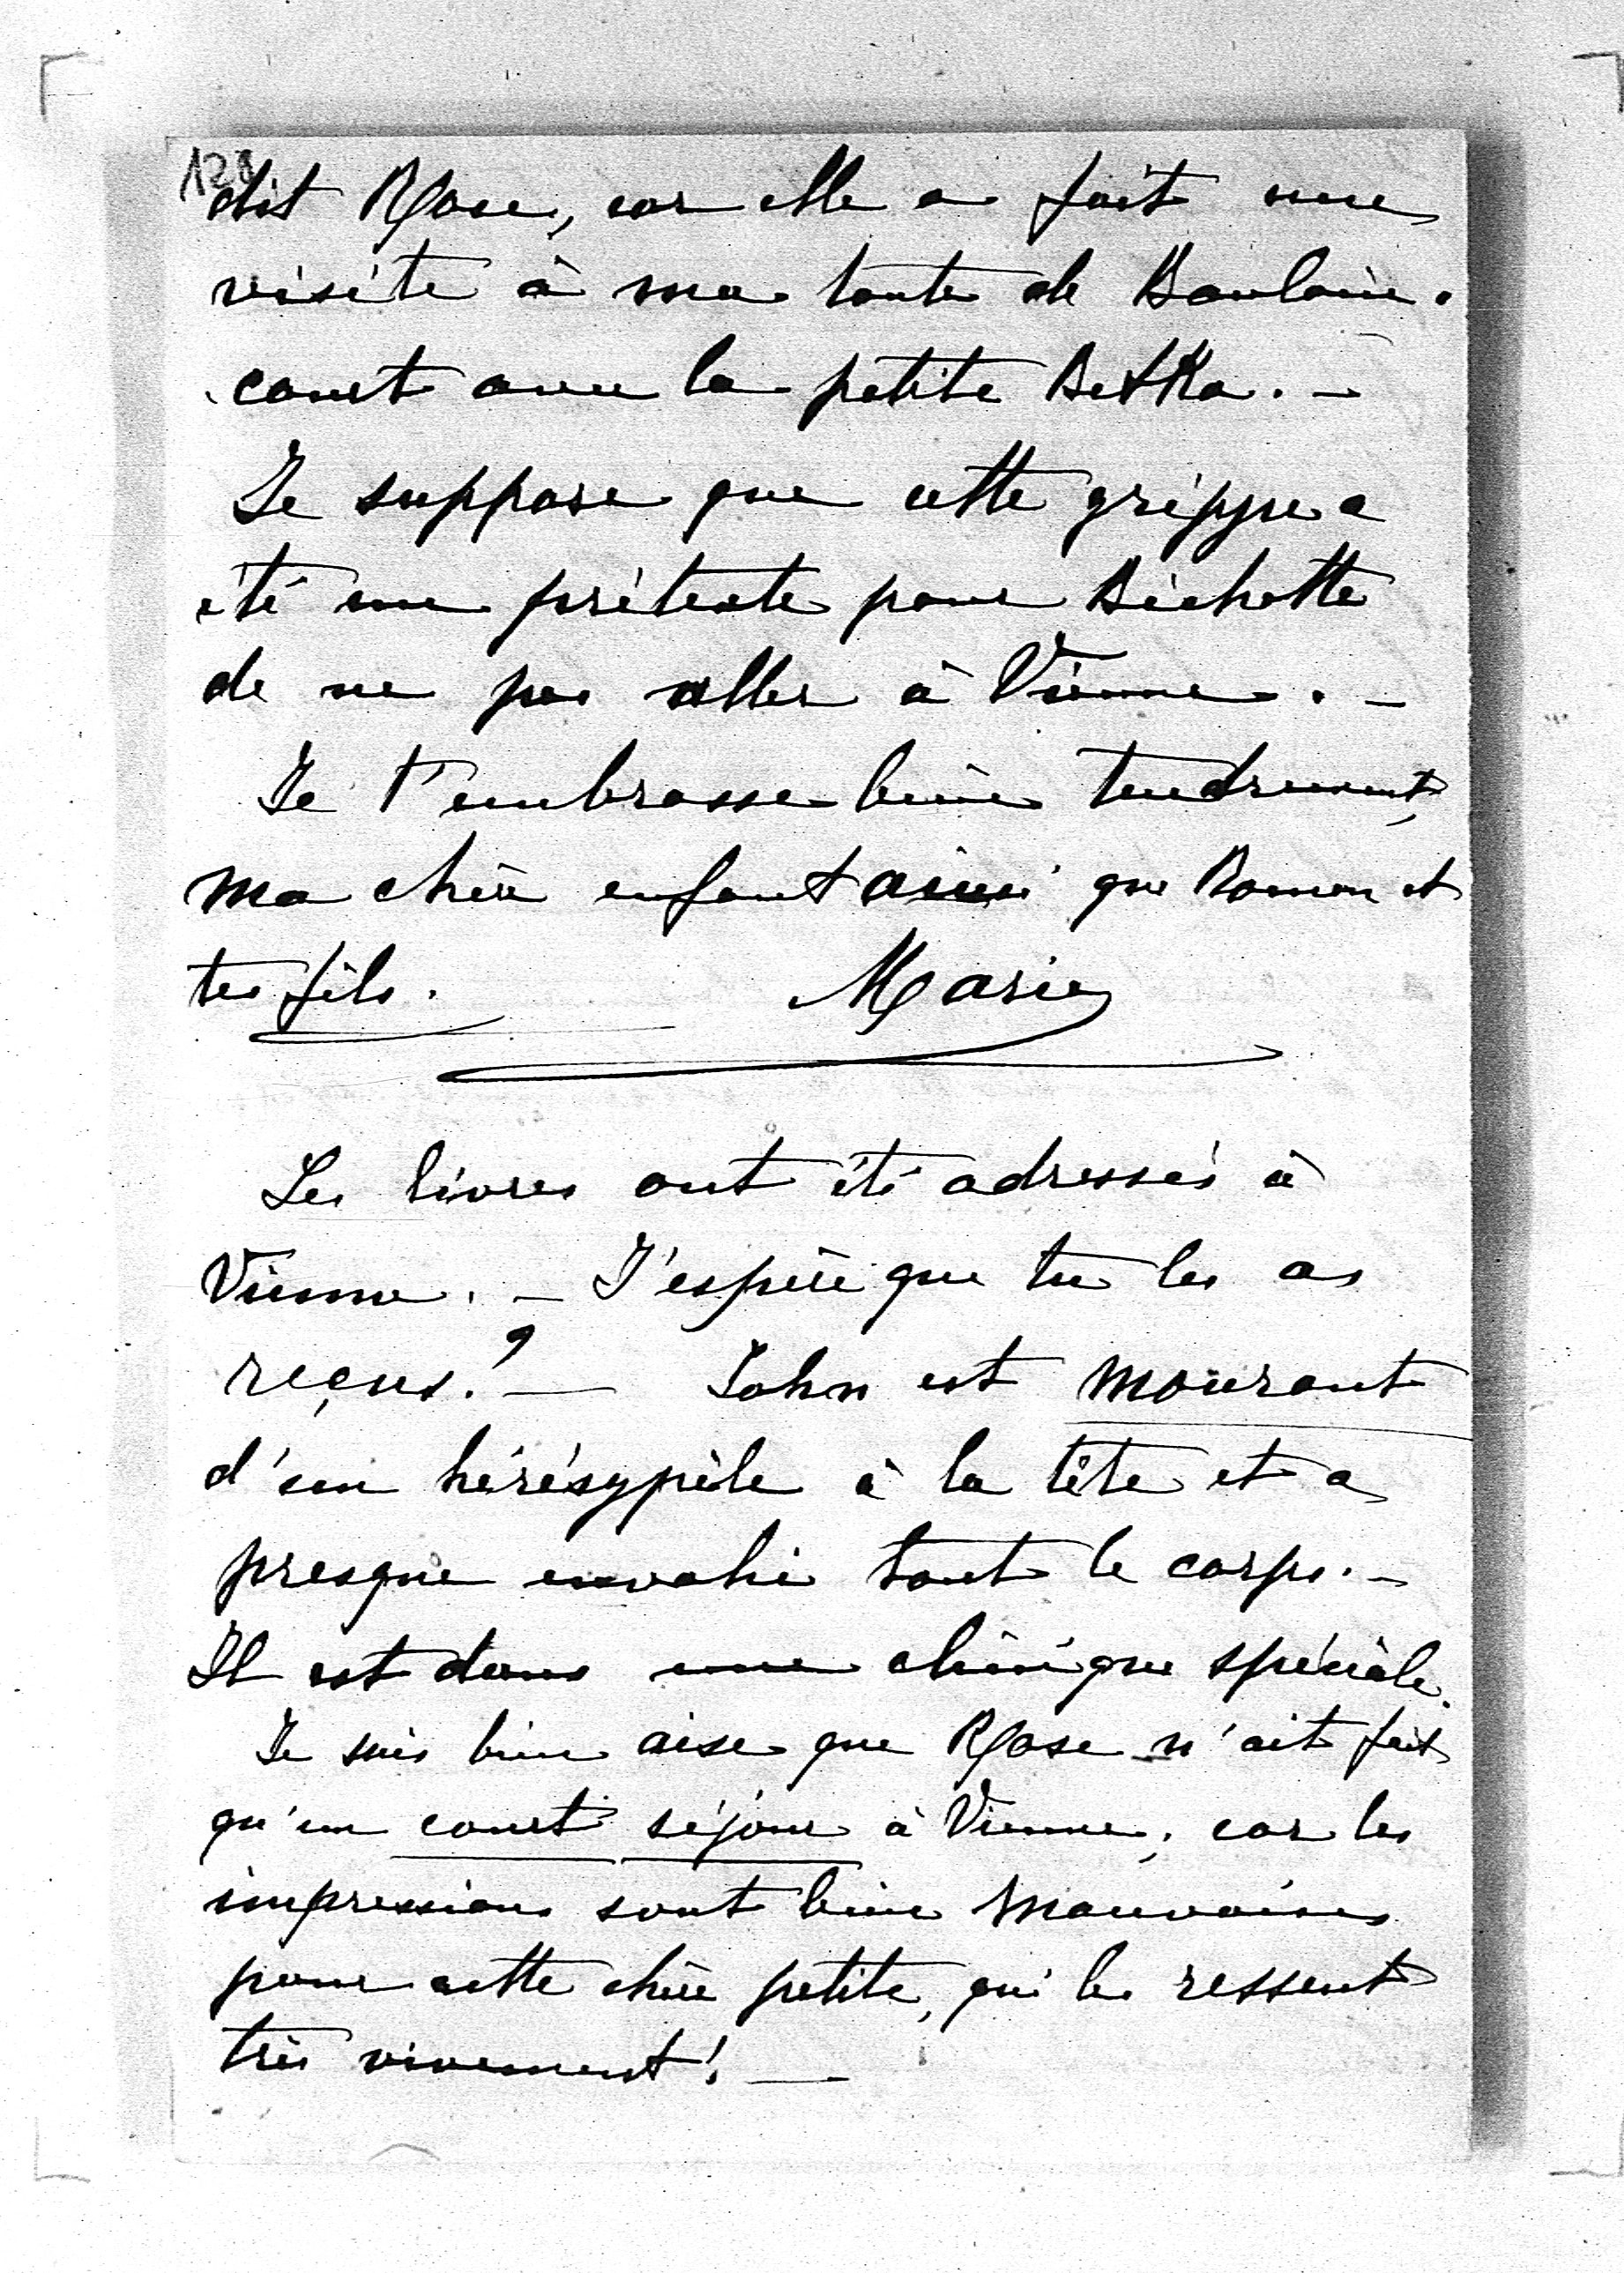 128
dit Rose, car elle a fait une
visite à ma tante de Boulain-
court avec la petite Betka. –
Je suppose que cette grippe a
été un prétexte pour Bichette
de ne pas aller à Vienne. –
Je t'embrasse bien tendrement,
ma chère enfant ainsi que Roman et
tes fils. Marie
Les livres ont été adressés à
Vienne. – J'espère que tu les as
reçus? – John est mourant
d'un hérésypèle à la tête et a
presque envahi tout le corps. –
Il est dans une clinique spéciale.
Je suis bien aise que Rose n'ait fait
qu'un court séjour à Vienne, car les
impressions sont bien mauvaises
pour cette chère petite, qui les ressent
très vivement! –